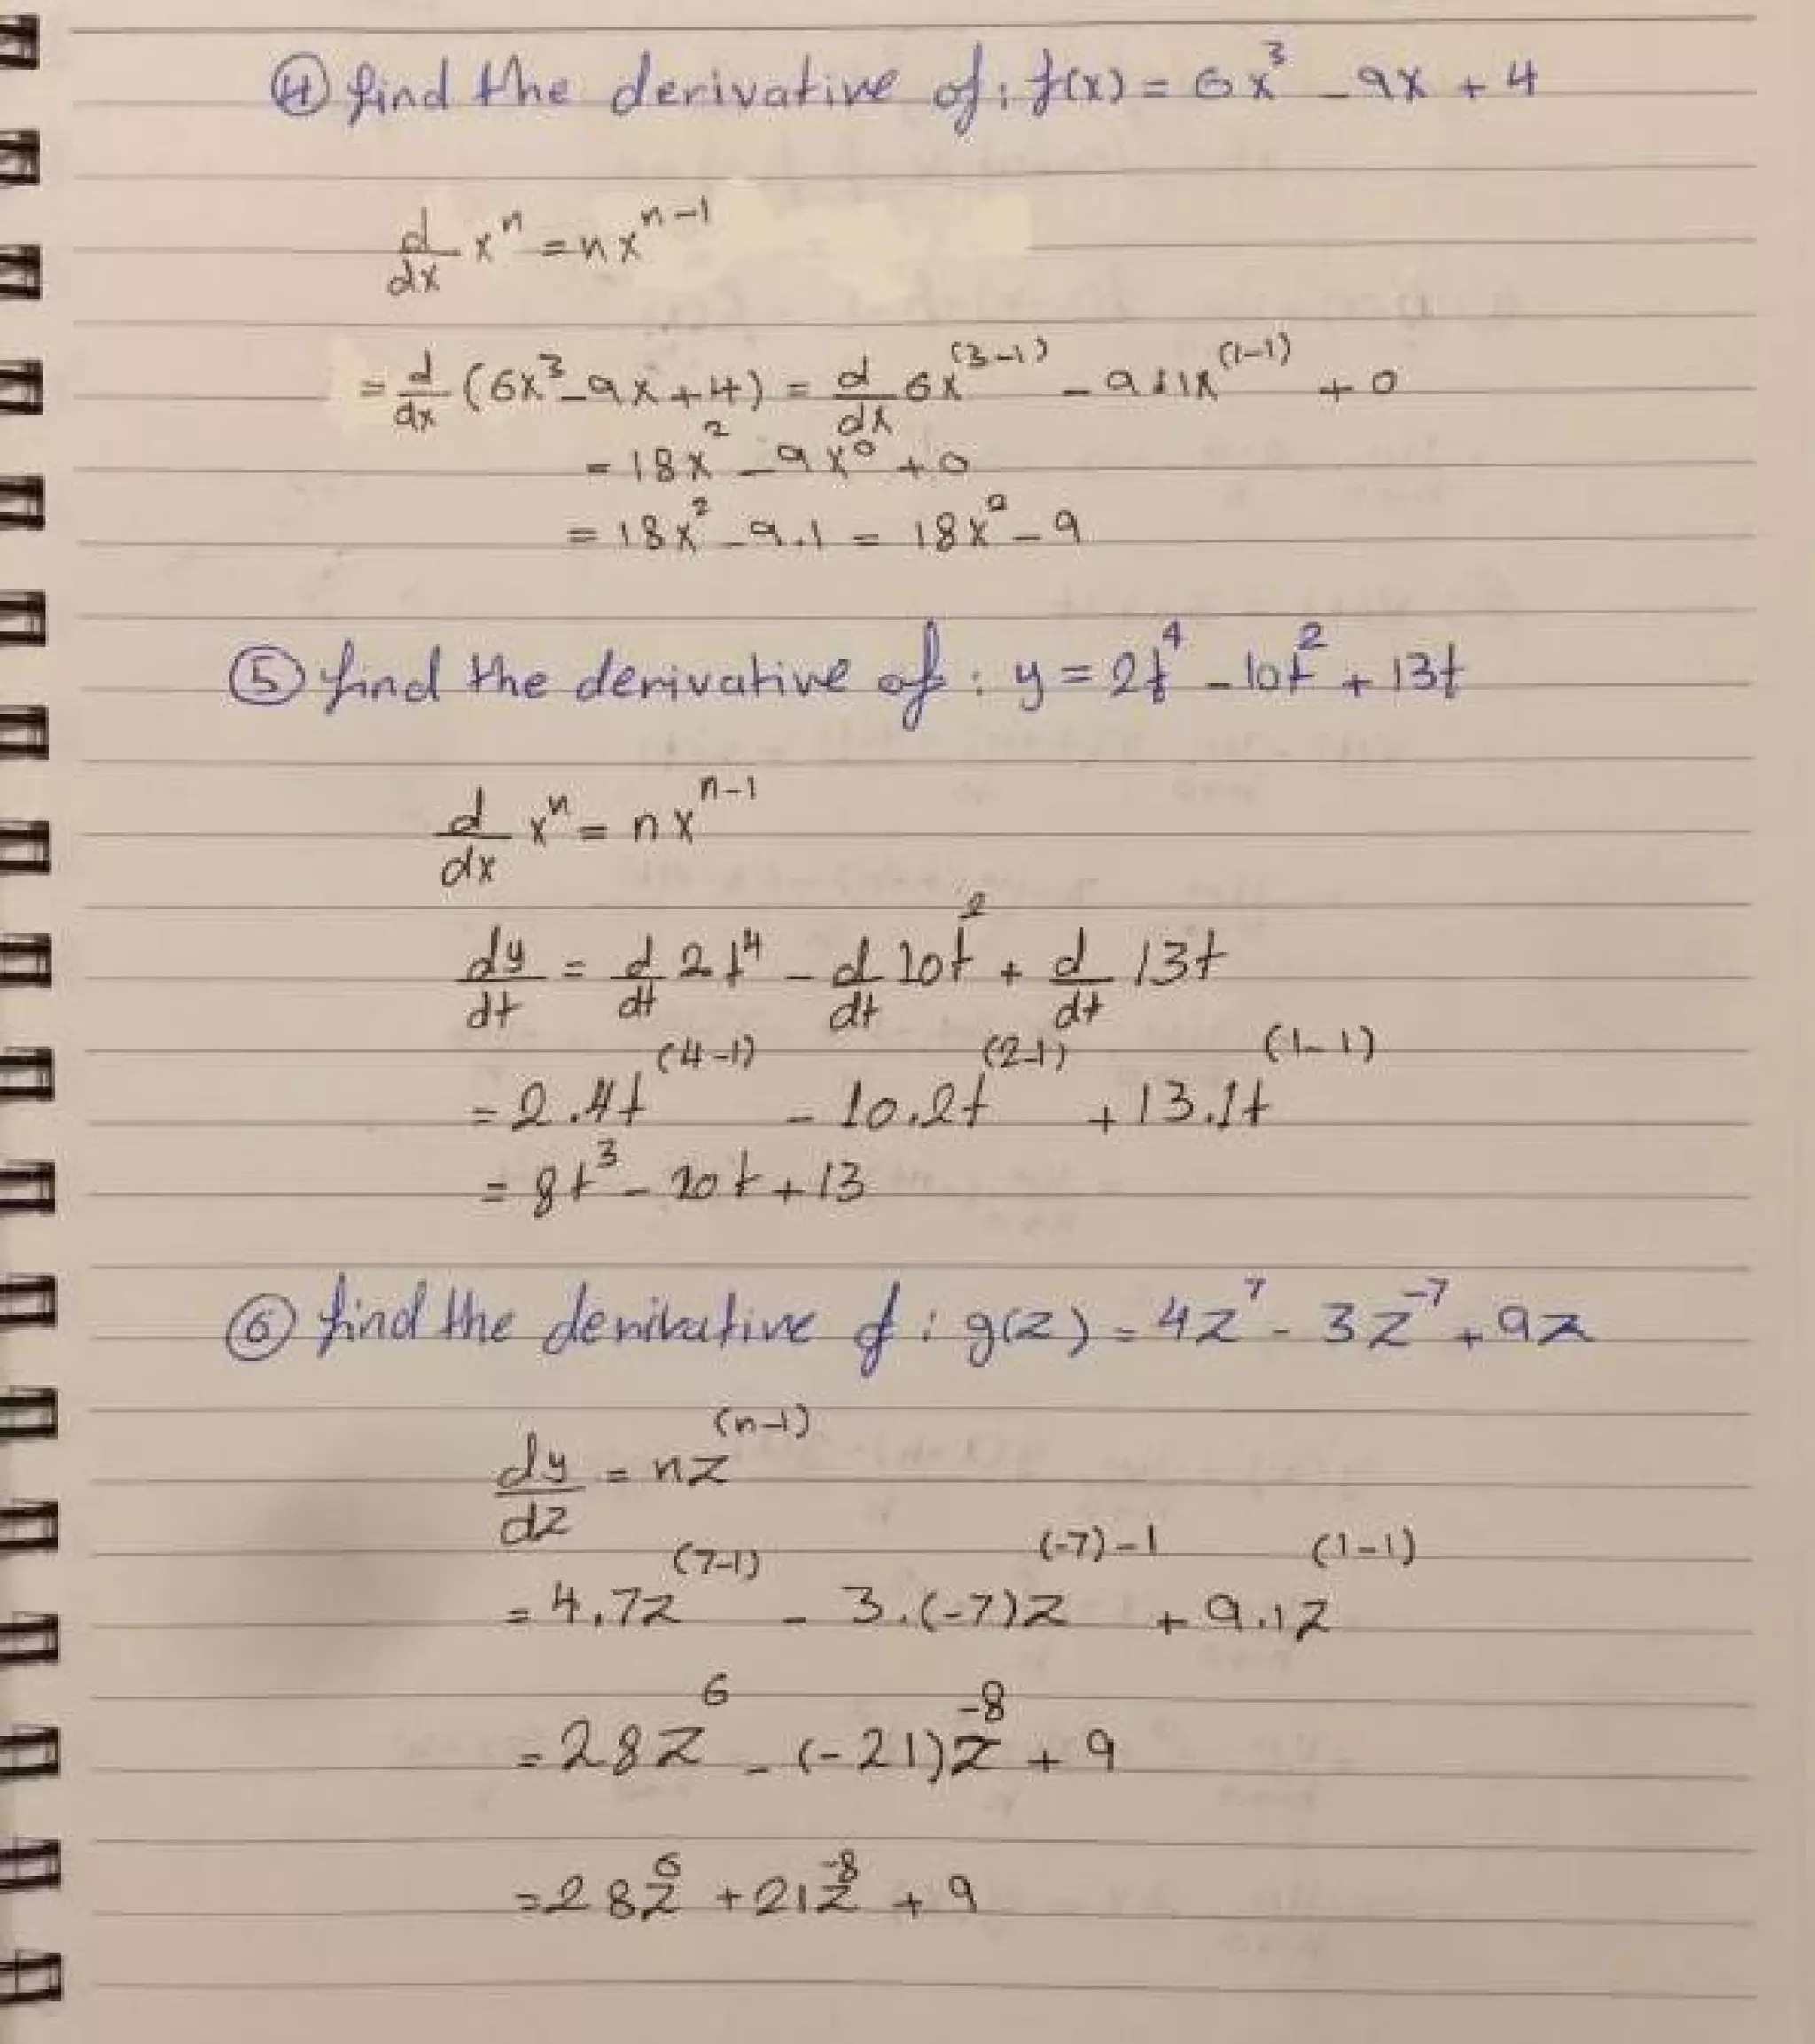 ④ find the derivative of: f(x) = 6x³ - 9x + 4
d/dx xⁿ = nxⁿ⁻¹
= d/dx (6x³ - 9x + 4) = d/dx 6x⁽³⁻¹⁾ - 9·1x⁽¹⁻¹⁾ + 0
= 18x² - 9x⁰ + 0
= 18x² - 9.1 = 18x² - 9
⑤ find the derivative of: y = 2t⁴ - 10t² + 13t
d/dx xⁿ = nxⁿ⁻¹
dy/dt = d/dt 2t⁴ - d/dt 10t² + d/dt 13t
= 2.4t⁽⁴⁻¹⁾ - 10.2t⁽²⁻¹⁾ + 13.1t⁽¹⁻¹⁾
= 8t³ - 20t + 13
⑥ find the derivative of: g(z) = 4z⁷ - 3z⁻⁷ + 9z
dy/dz = nz⁽ⁿ⁻¹⁾
= 4.7z⁽⁷⁻¹⁾ - 3.(-7)z⁽⁻⁷⁾⁻¹ + 9.1z⁽¹⁻¹⁾
= 28z⁶ - (-21)z⁻⁸ + 9
= 28z⁶ + 21z⁻⁸ + 9